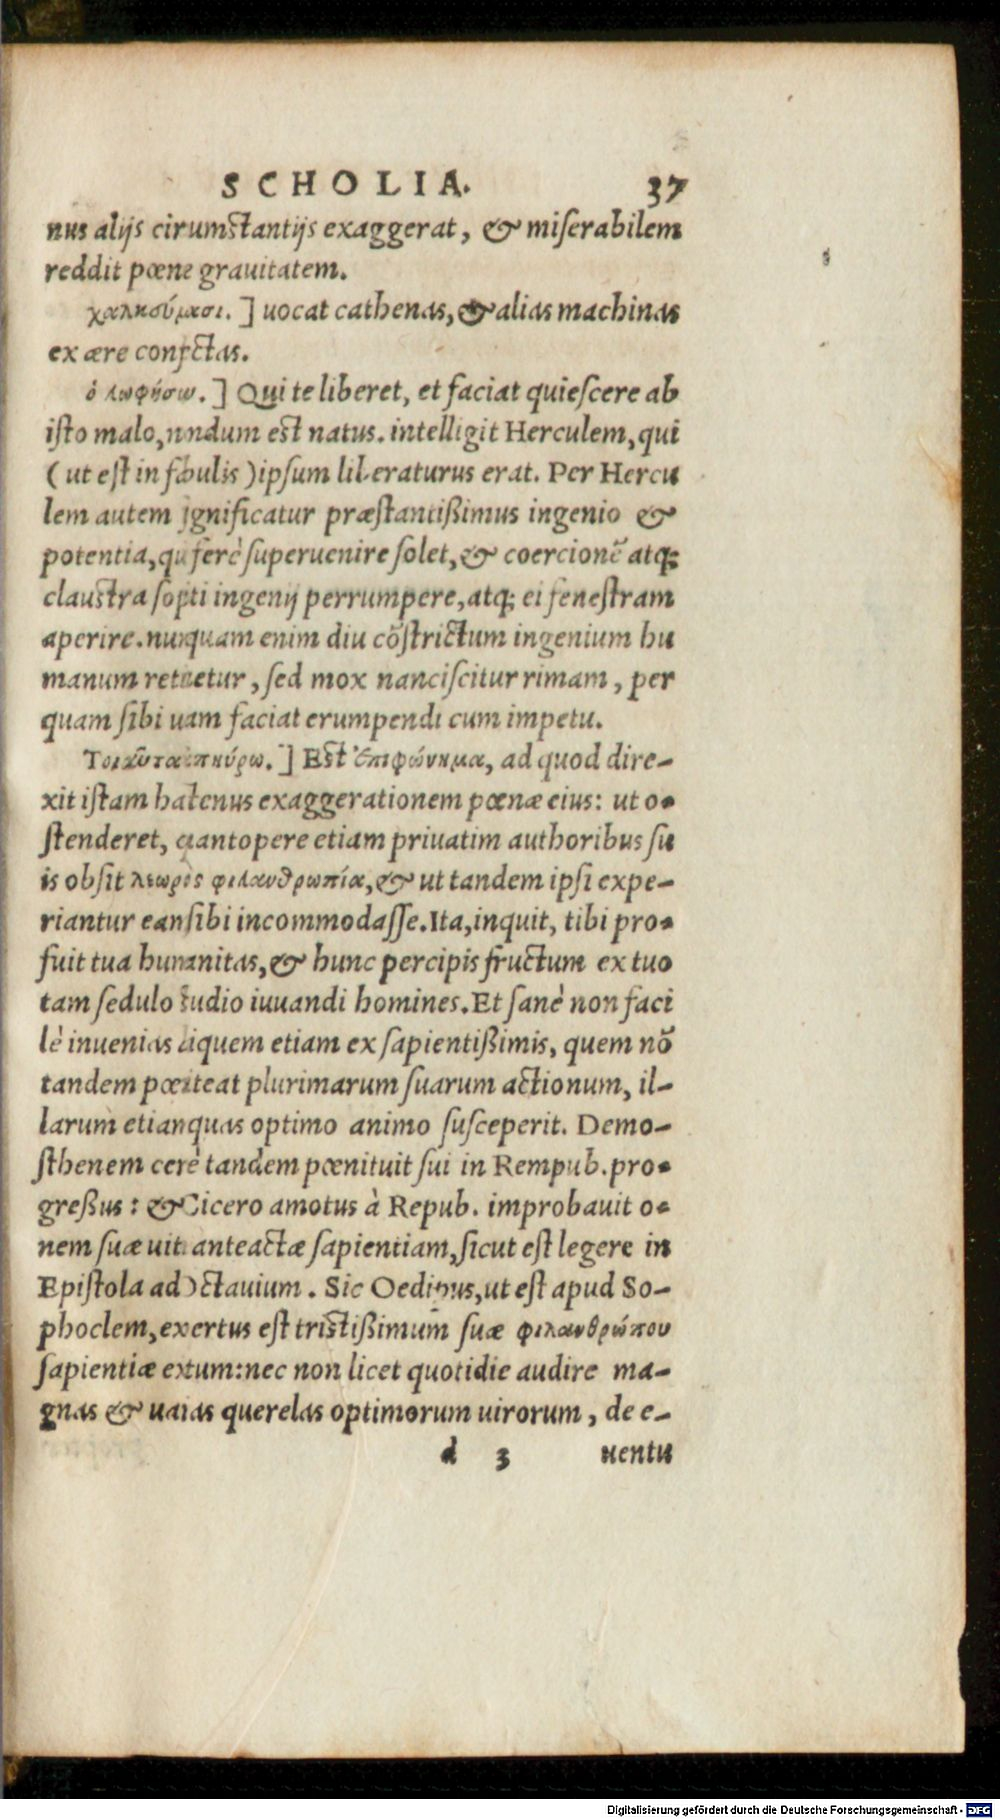 SCHOLIA. 37
nus alijs cirumstantijs exaggerat, & miserabilem
reddit pœne grauitatem.
χαλκούμασι.] uocat cathenas, & alias machinas
ex ære confctas.
ὁ λωφήσω.] Qui te liberet, et faciat quiescere ab
isto malo, nndum est natus. intelligit Herculem, qui
(ut est in fabulis) ipsum liberaturus erat. Per Hercu
lem autem ignificatur præstantißimus ingenio &
potentia, qu ferè superuenire solet, & coercionē atq;
claustra sopti ingenij perrumpere, atq; ei fenestram
aperire. nunquam enim diu cōstrictum ingenium hu
manum retnetur, sed mox nanciscitur rimam, per
quam sibi uam faciat erumpendi cum impetu.
Est ἐπιφώνημα, ad quod dire-
xit istam hatenus exaggerationem pœnæ eius: ut o-
stenderet, qantopere etiam priuatim authoribus su
is obsit λεωρὸς φιλανθρωπία, & ut tandem ipsi expe-
riantur ean sibi incommodasse. Ita, inquit, tibi pro-
fuit tua humanitas, & hunc percipis fructum ex tuo
tam sedulo studio iuuandi homines. Et sanè non faci
lè inuenias aliquem etiam ex sapientißimis, quem nō
tandem pœniteat plurimarum suarum actionum, il-
larum etian quas optimo animo susceperit. Demo-
sthenem cerè tandem pœnituit sui in Rempub. pro-
greßus: & Cicero amotus à Repub. improbauit o-
nem suæ uitæ anteactæ sapientiam, sicut est legere in
Epistola ad Octauium. Sic Oedipus, ut est apud So-
phoclem, exertus est tristißimum suæ φιλανθρώπου
sapientiæ extum: nec non licet quotidie audire ma-
gnas & uarias querelas optimorum uirorum, de e-
d 3 uentu
Digitalisierung gefördert durch die Deutsche Forschungsgemeinschaft - DFG